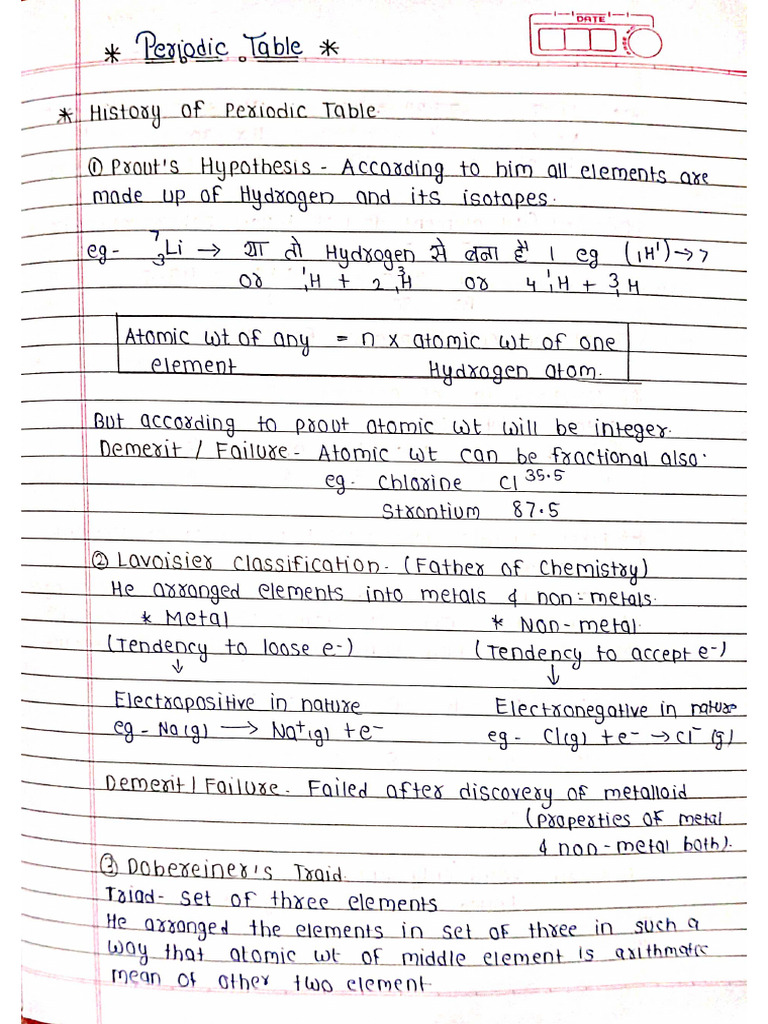 DATE
* Periodic Table *
* History of Periodic Table.
① Prout's Hypothesis - According to him all elements are
made up of Hydrogen and its isotapes.
eg- ⁷₃Li → या तो Hydrogen से बना है । eg (₁H¹) → 7
or ¹₁H + 2 ³₁H or 4 ¹₁H + ³₁H
Atomic wt of any = n x atomic wt of one
element Hydrogen atom.
But according to prout atomic wt will be integer.
Demerit / Failure - Atomic wt can be fractional also.
eg. Chlorine Cl ³⁵·⁵
Strontium 87.5
② Lavoisier Classification. (Father of Chemistry)
He arranged elements into metals & non-metals.
* Metal * Non-metal
(Tendency to loose e-) (Tendency to accept e-)
↓ ↓
Electropositive in nature Electronegative in nature
eg - Na(g) → Na⁺(g) + e⁻ eg - Cl(g) + e⁻ → Cl⁻(g)
Demerit / Failure - Failed after discovery of metalloid
(properties of metal
& non-metal both).
③ Dobereiner's Traid.
Triad - Set of three elements
He arranged the elements in set of three in such a
way that atomic wt of middle element is arithmatic
mean of other two element.